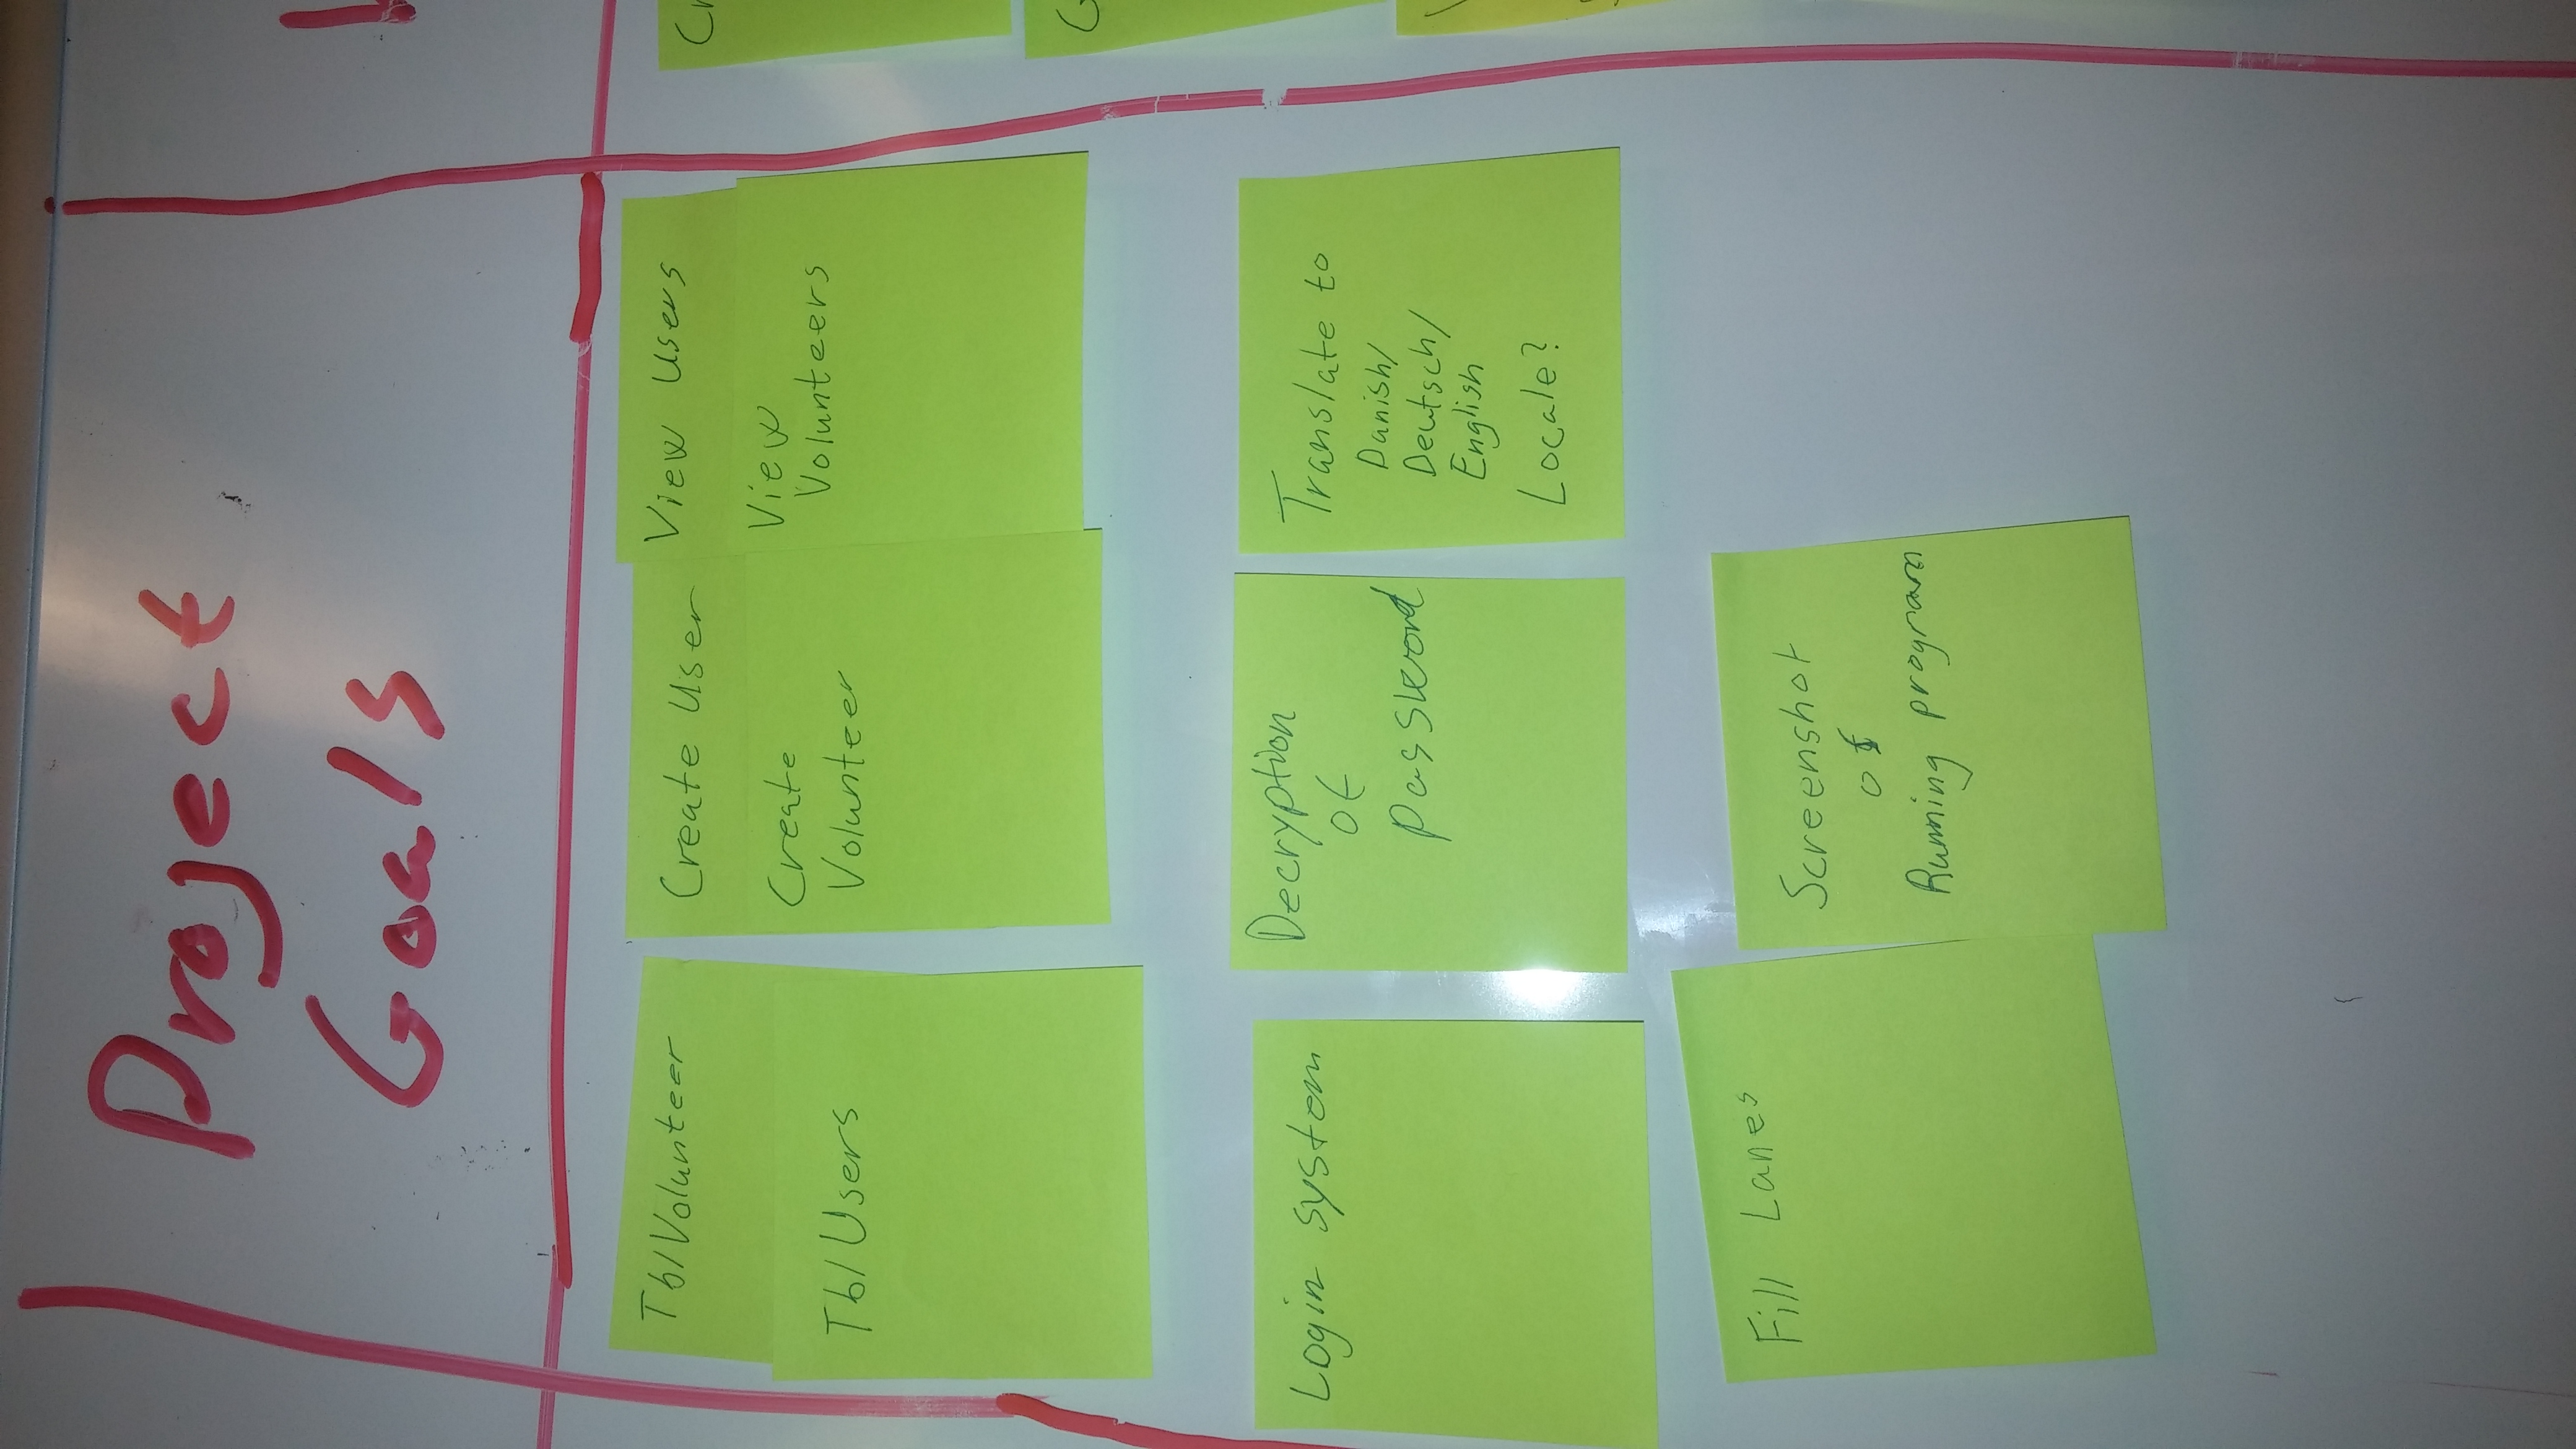 Project
Goals
TblVolunteer
TblUsers
Create User
Create
Volunteer
View Users
View
Volunteers
Login system
Decryption
of
password
Translate to
Danish/
Deutsch/
English
Locale?
Fill Lanes
Screenshot
of
Running program